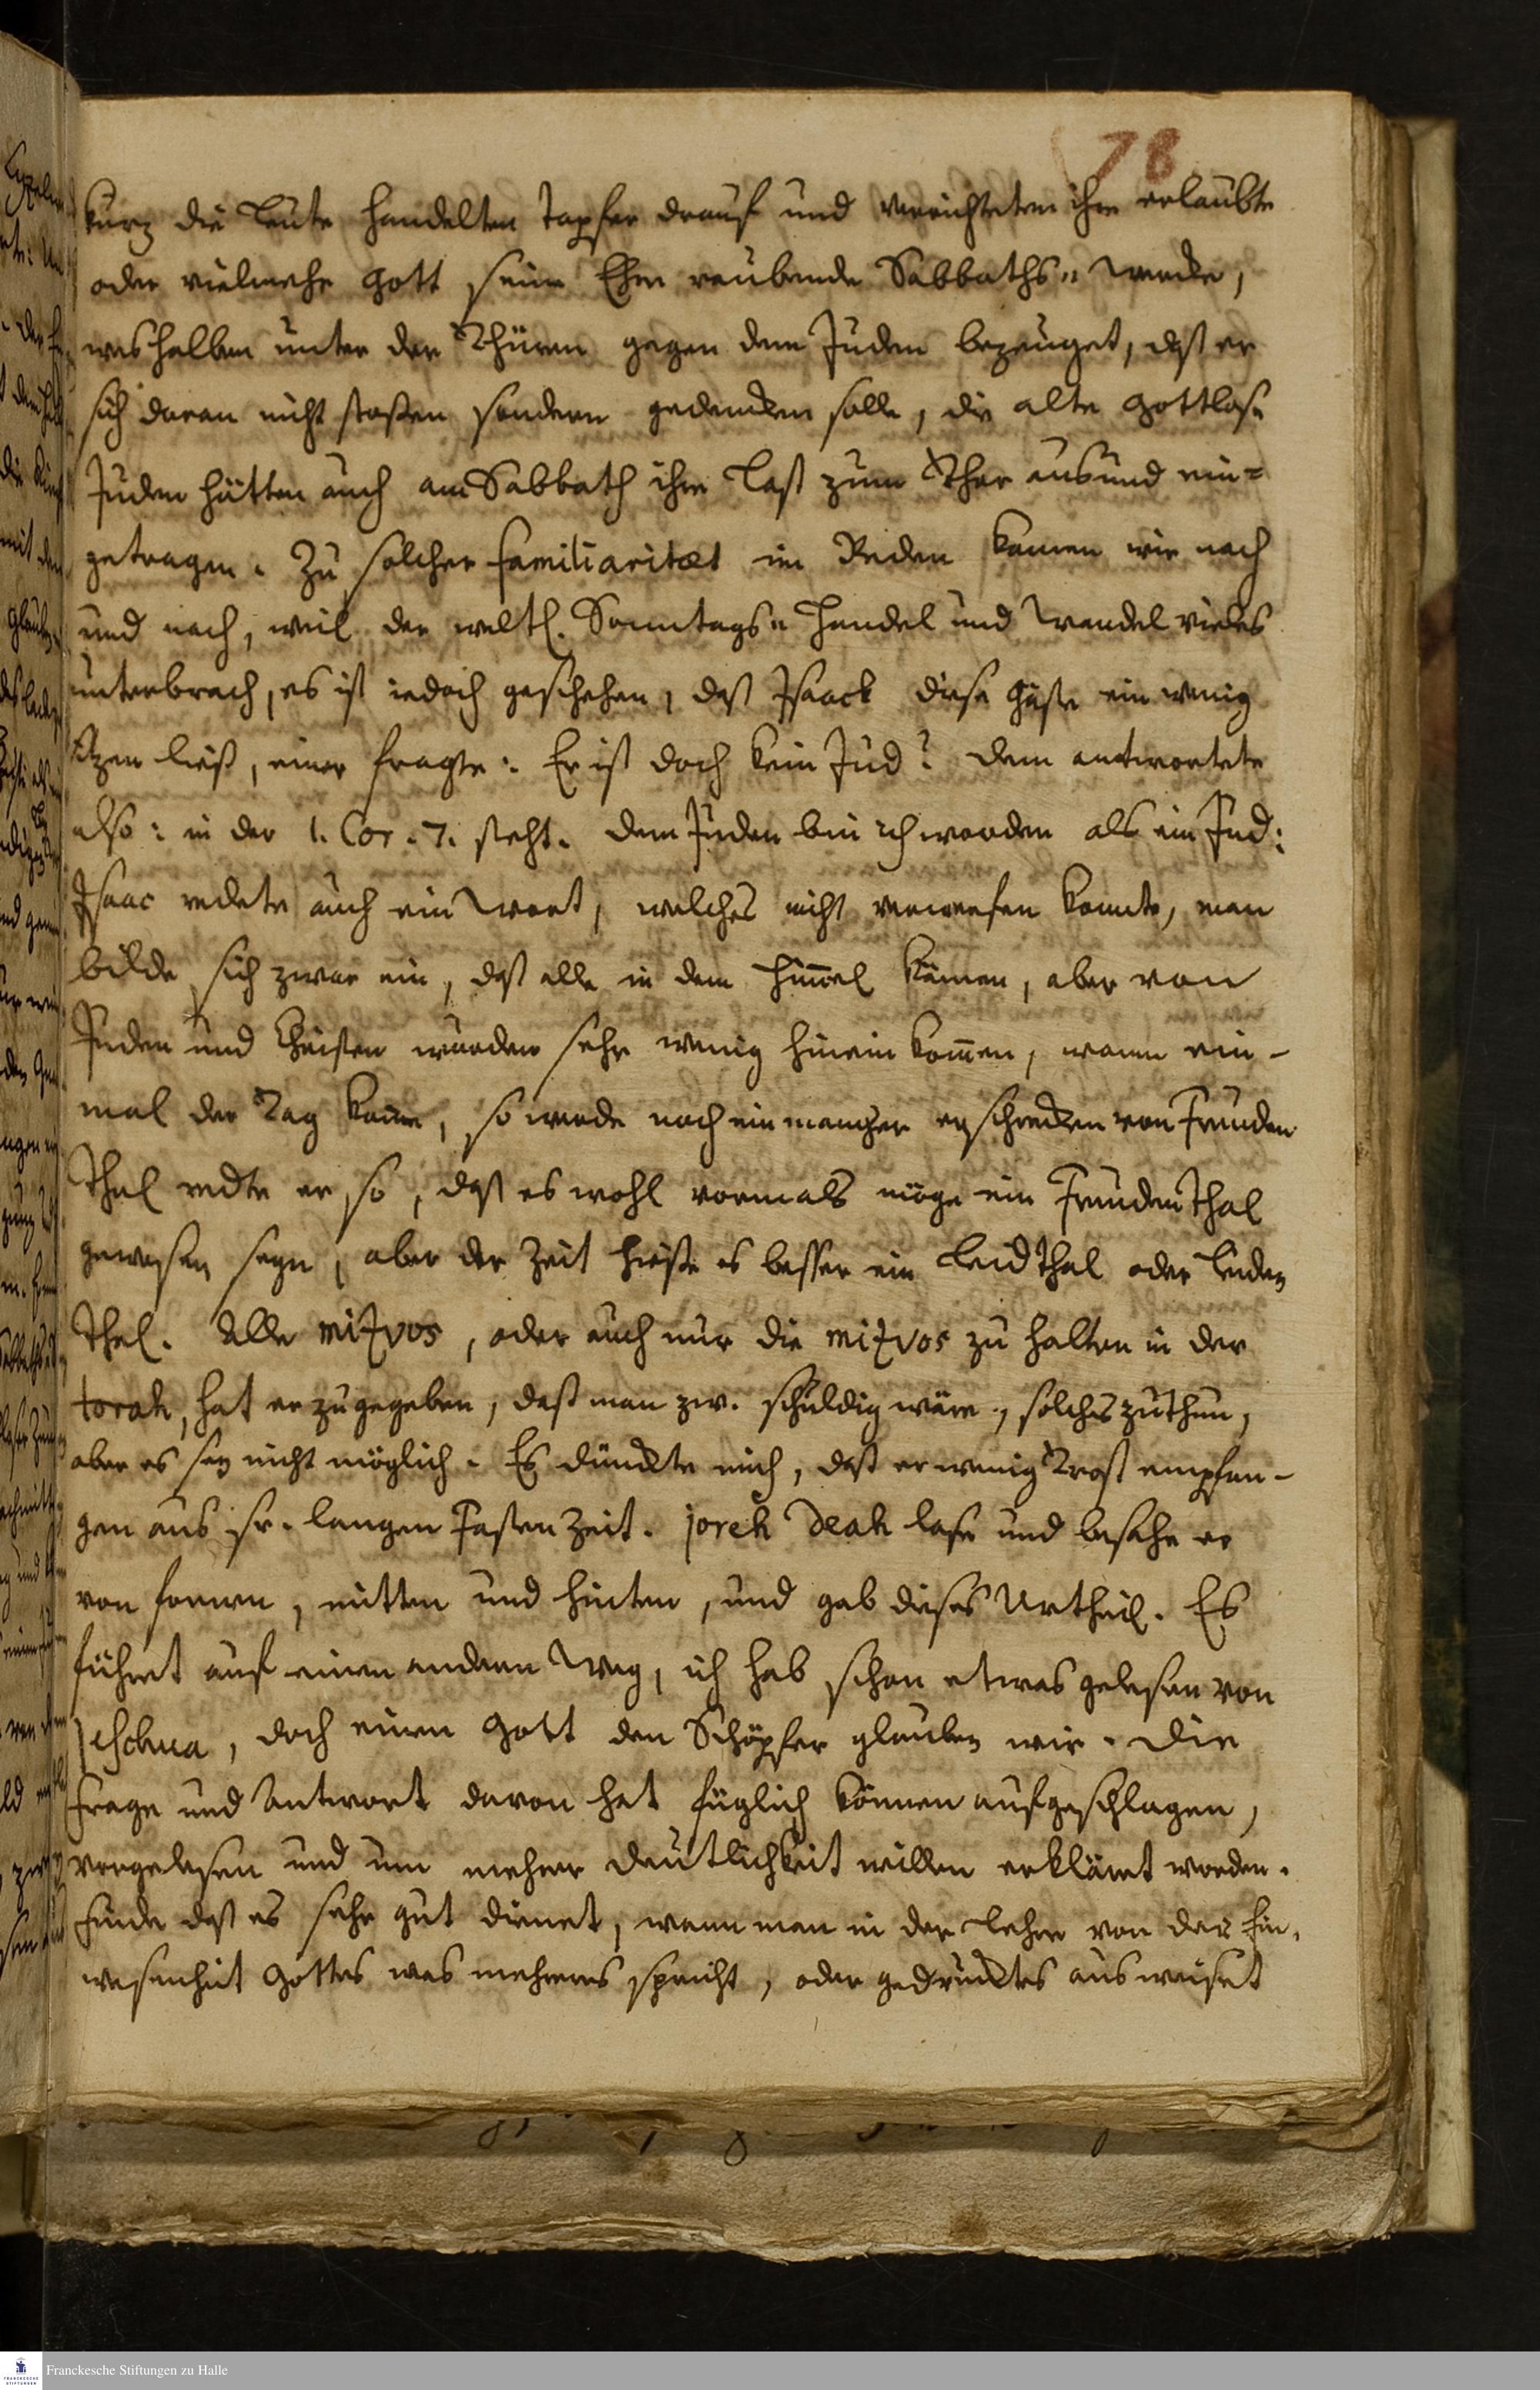 78
kurz die Leute handelten tapfer drauf und verrichteten ihre erlaubte
oder vielmehr Gott seine Ehre raubende Sabbaths-Wercke,
weshalben unter der Thüren gegen dem Juden bezeuget, daß er
sich daran nicht stoßen sondern gedencken solle, die alte gottlose
Juden hätten auch am Sabbath ihre Last zum Thor aus und ein-
getragen. Zu solcher familiaritæt im Reden kamen wir nach
und nach, weil der weltl. Sonntags-Handel und Wandel vieles
unterbrach, es ist jedoch geschehen, daß Isaack diese Gäste ein wenig
sitzen ließ, einer fragte: Er ist doch kein Jud? dem antwortete
also: in der 1. Cor. 7. steht. dem Juden bin ich worden als ein Jud:
Isaac redete auch ein Wort, welches nicht verwerfen konnte, man
bilde sich zwar ein, daß alle in dem Himmel kämen, aber von
Juden und Christen würden sehr wenig hinein kommen, wann ein-
mal der Tag komme, so werde noch ein mancher erschrecken von Freuden
thal redte er so, daß es wohl vormals möge ein Freudenthal
gewesen seyn, aber der Zeit hieße es besser ein Leidthal oder Leiden
thal. Alle mitzvos, oder auch nur die mitzvos zu halten in der
torah, hat er zugegeben, daß man zw. schuldig wäre, solches zuthun,
aber es sey nicht möglich. Es dünckte mich, daß er wenig Trost empfan-
gen aus sr. langen Fasten Zeit. joreh deah lase und besahe er
von fornen, mitten und hinten, und gab dieses Urtheil. Es
führet auf einen andern Weg, ich hab schon etwas gelesen von
Jeschua, doch einen Gott den Schöpfer glauben wir. Die
Frage und Antwort davon hat füglich können aufgeschlagen,
vorgelesen und um mehrer Deutlichkeit willen erklärt worden.
Finde daß es sehr gut dienet, wann man in der Lehre von der Ein-
wesenheit Gottes was mehrers spricht, oder gedrucktes ausweiset
Franckesche Stiftungen zu Halle